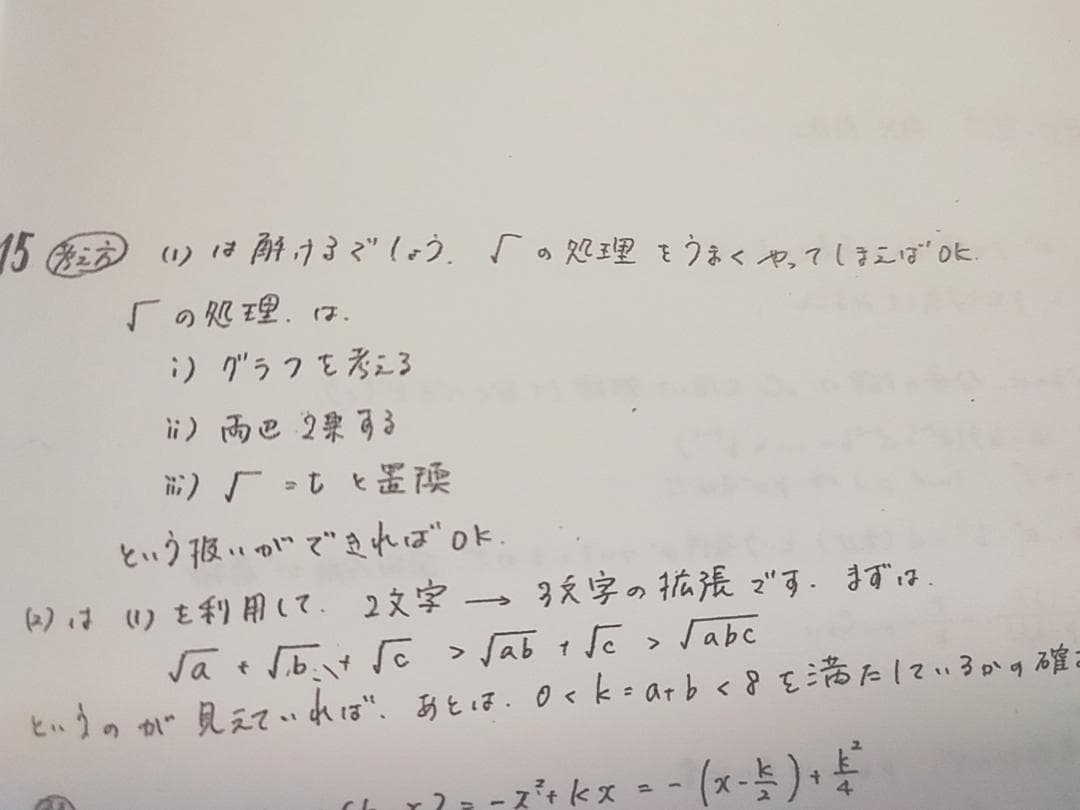 15 考え方 (1) は 解けるでしょう. √ の処理をうまくやってしまえばOK.
√ の処理. は.
i) グラフを考える
ii) 両辺 2乗する
iii) √ = t と置換
という扱いができればOK.
(2) は (1) を利用して. 2文字 → 3文字の拡張です. まずは.
√a + √b + √c > √ab + √c > √abc
というのが 見えていれば. あとは. 0 < k = a+b < 8 を満たしているかの確
x) = -x²+kx = -(x-k/2)+k²/4